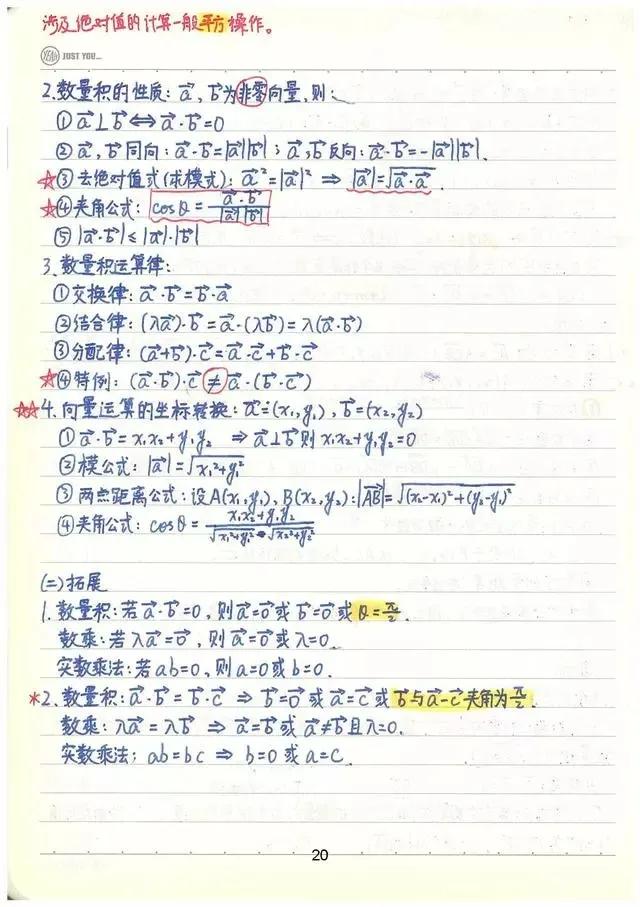 涉及绝对值的计算一般平方操作。
JUST YOU...
2.数量积的性质：a⃗，b⃗为非零向量，则：
①a⃗⊥b⃗⇔a⃗·b⃗=0
②a⃗，b⃗同向：a⃗·b⃗=|a⃗||b⃗|；a⃗，b⃗反向：a⃗·b⃗=-|a⃗||b⃗|.
☆③去绝对值式(求模式)：a⃗²=|a⃗|² ⇒ |a⃗|=√(a⃗·a⃗)
☆④夹角公式：cosθ=(a⃗·b⃗)/(|a⃗||b⃗|)
⑤|a⃗·b⃗|≤|a⃗|·|b⃗|
3.数量积运算律：
①交换律：a⃗·b⃗=b⃗·a⃗
②结合律：(λa⃗)·b⃗=a⃗·(λb⃗)=λ(a⃗·b⃗)
③分配律：(a⃗+b⃗)·c⃗=a⃗·c⃗+b⃗·c⃗
☆④特例：(a⃗·b⃗)·c⃗≠a⃗·(b⃗·c⃗)
☆☆4.向量运算的坐标转换：a⃗=(x₁,y₁)，b⃗=(x₂,y₂)
①a⃗·b⃗=x₁x₂+y₁y₂ ⇒a⃗⊥b⃗则x₁x₂+y₁y₂=0
②模公式：|a⃗|=√(x₁²+y₁²)
③两点距离公式：设A(x₁,y₁)，B(x₂,y₂)：|AB⃗|=√((x₂-x₁)²+(y₂-y₁)²)
④夹角公式：cosθ=(x₁x₂+y₁y₂)/(√(x₁²+y₁²)·√(x₂²+y₂²))
(二)拓展
1.数量积：若a⃗·b⃗=0，则a⃗=0⃗或b⃗=0⃗或θ=π/2.
数乘：若λa⃗=0⃗，则a⃗=0⃗或λ=0.
实数乘法：若ab=0，则a=0或b=0.
*2.数量积：a⃗·b⃗=b⃗·c⃗ ⇒ b⃗=0⃗或a⃗=c⃗或b⃗与a⃗-c⃗夹角为π/2.
数乘：λa⃗=λb⃗ ⇒ a⃗=b⃗或a⃗≠b⃗且λ=0.
实数乘法；ab=bc ⇒ b=0或a=c.
20